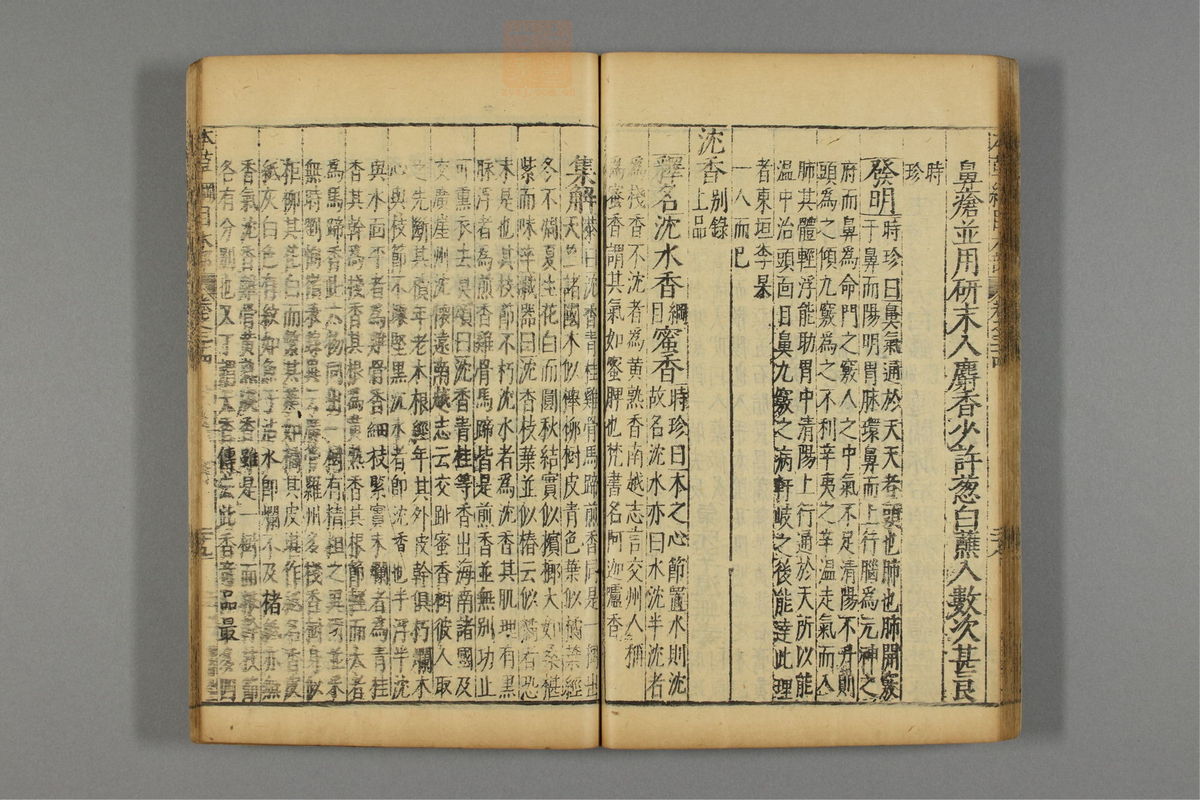 鼻瘡並用研末入麝香少許葱白蘸入數次甚良
時
珍
發明時珍曰鼻氣通於天天者頭也肺也肺開竅
于鼻而陽明胃脉環鼻而上行腦為元神之
府而鼻為命門之竅人之中氣不足清陽不升則
頭為之傾九竅為之不利辛夷之辛溫走氣而入
肺其體輕浮能助胃中清陽上行通於天所以能
溫中治頭面目鼻九竅之病軒岐之後能達此理
者東垣李杲
一人而已
沈香別錄上品
釋名沈水香綱目蜜香時珍曰木之心節置水則沈
故名沈水亦曰水沈半沈者
為棧香不沈者為黃熟香南越志言交州人稱
為蜜香謂其氣如蜜脾也梵書名阿迦嚧香
集解恭曰沈香青桂雞骨馬蹄煎香同是一樹出
天竺諸國木似櫸柳樹皮青色葉似橘葉經
冬不凋夏生花白而圓秋結實似檳榔大如桑椹
紫而味辛藏器曰沈香枝葉並似椿云似橘者恐
未是也其枝節不朽沈水者為沈香其肌理有黑
脉浮者為煎香雞骨馬蹄皆是煎香並無別功止
可熏衣去臭頌曰沈香青桂等香出海南諸國及
交廣崖州沈懷遠南越志云交趾蜜香樹彼人取
之先斷其積年老木根經年其外皮幹俱朽爛木
心與枝節不壞堅黑沈水者即沈香也半浮半沈
與水面平者為雞骨香細枝緊實未爛者為青桂
香其幹為棧香其根為黃熟香其根節輕而大者
為馬蹄香此六物同出一樹有精粗之異
無時劉恂嶺表錄異云廣管羅州多棧香樹身似
柜柳其花白而繁其葉如橘其皮堪作紙名香皮
紙灰白色有紋如魚子沾水即爛不及楮紙亦無
香氣沈香雞骨黃熟棧香雖是一樹而根幹枝節
各有分別也又丁謂天香傳云此香奇品最多四
本草綱目木部 卷之三十四